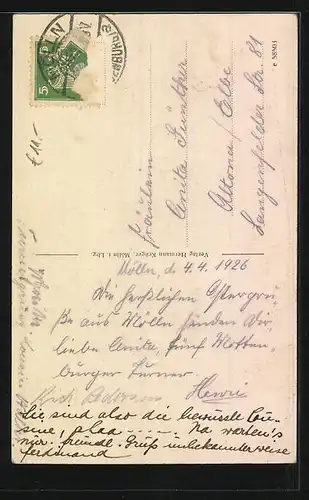 MÖLLN
5
e 58503
£ 11.-
Fräulein
Anita Günther
Altona/Elbe
Langenfelder Str. 81
Verlag Hermann Krüger, Mölln i. Lbg.
Mölln, d. 4.4.1926
Die herzlichen Ostergrü-
ße aus Mölln senden Dir
liebe Anita, fünf Motten-
burger Turner.
Henri
Sie sind also die bewusste Cou-
sine, ahaa ----- Na warten's
nur. freundl. Gruß unbekannterweise
ferdinand